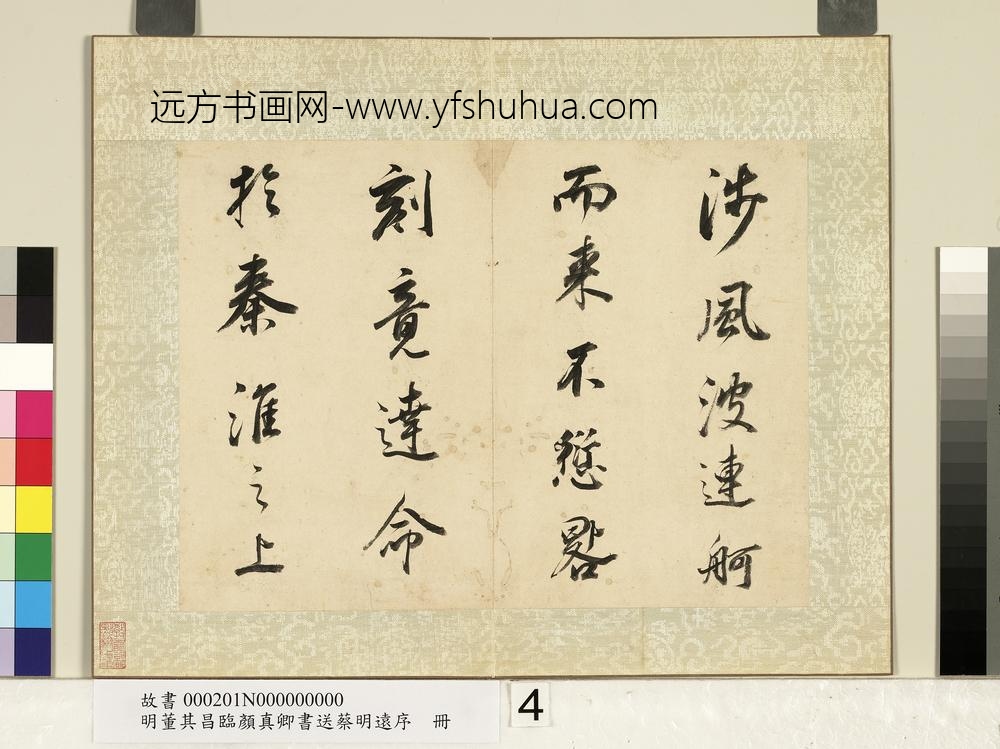 远方书画网-www.yfshuhua.com
涉風波連舸
而来不愆晷
刻竟達命
於秦淮之上
故書 000201N000000000
明董其昌臨顏真卿書送蔡明遠序 冊
4